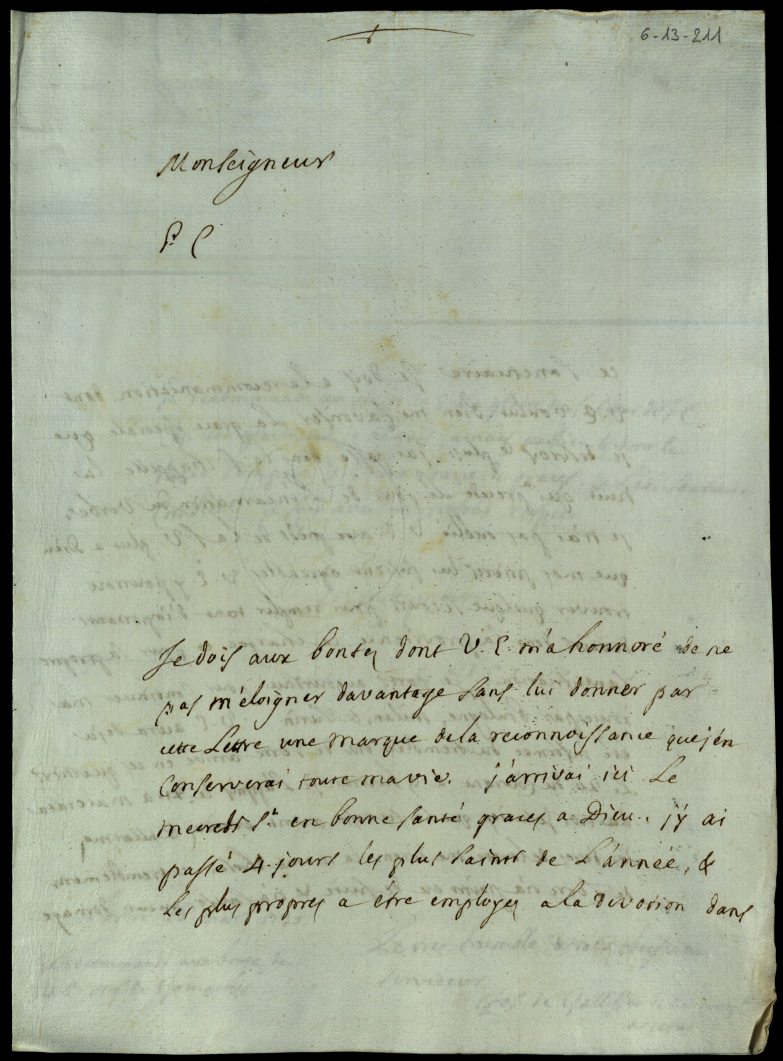 6-13-211
Monseigneur
P. C
Je dois aux bontez dont V. E. m'a honnoré de ne
pas m'éloigner davantage sans lui donner par
cette Lettre une marque de la reconnoissance que j'en
Conserverai toute ma vie. j'arrivai ici Le
mecredi St. en bonne santé graces a Dieu. j'y ai
passé 4. jours les plus saints de L'année, &
les plus propres a être employez a la devotion dans